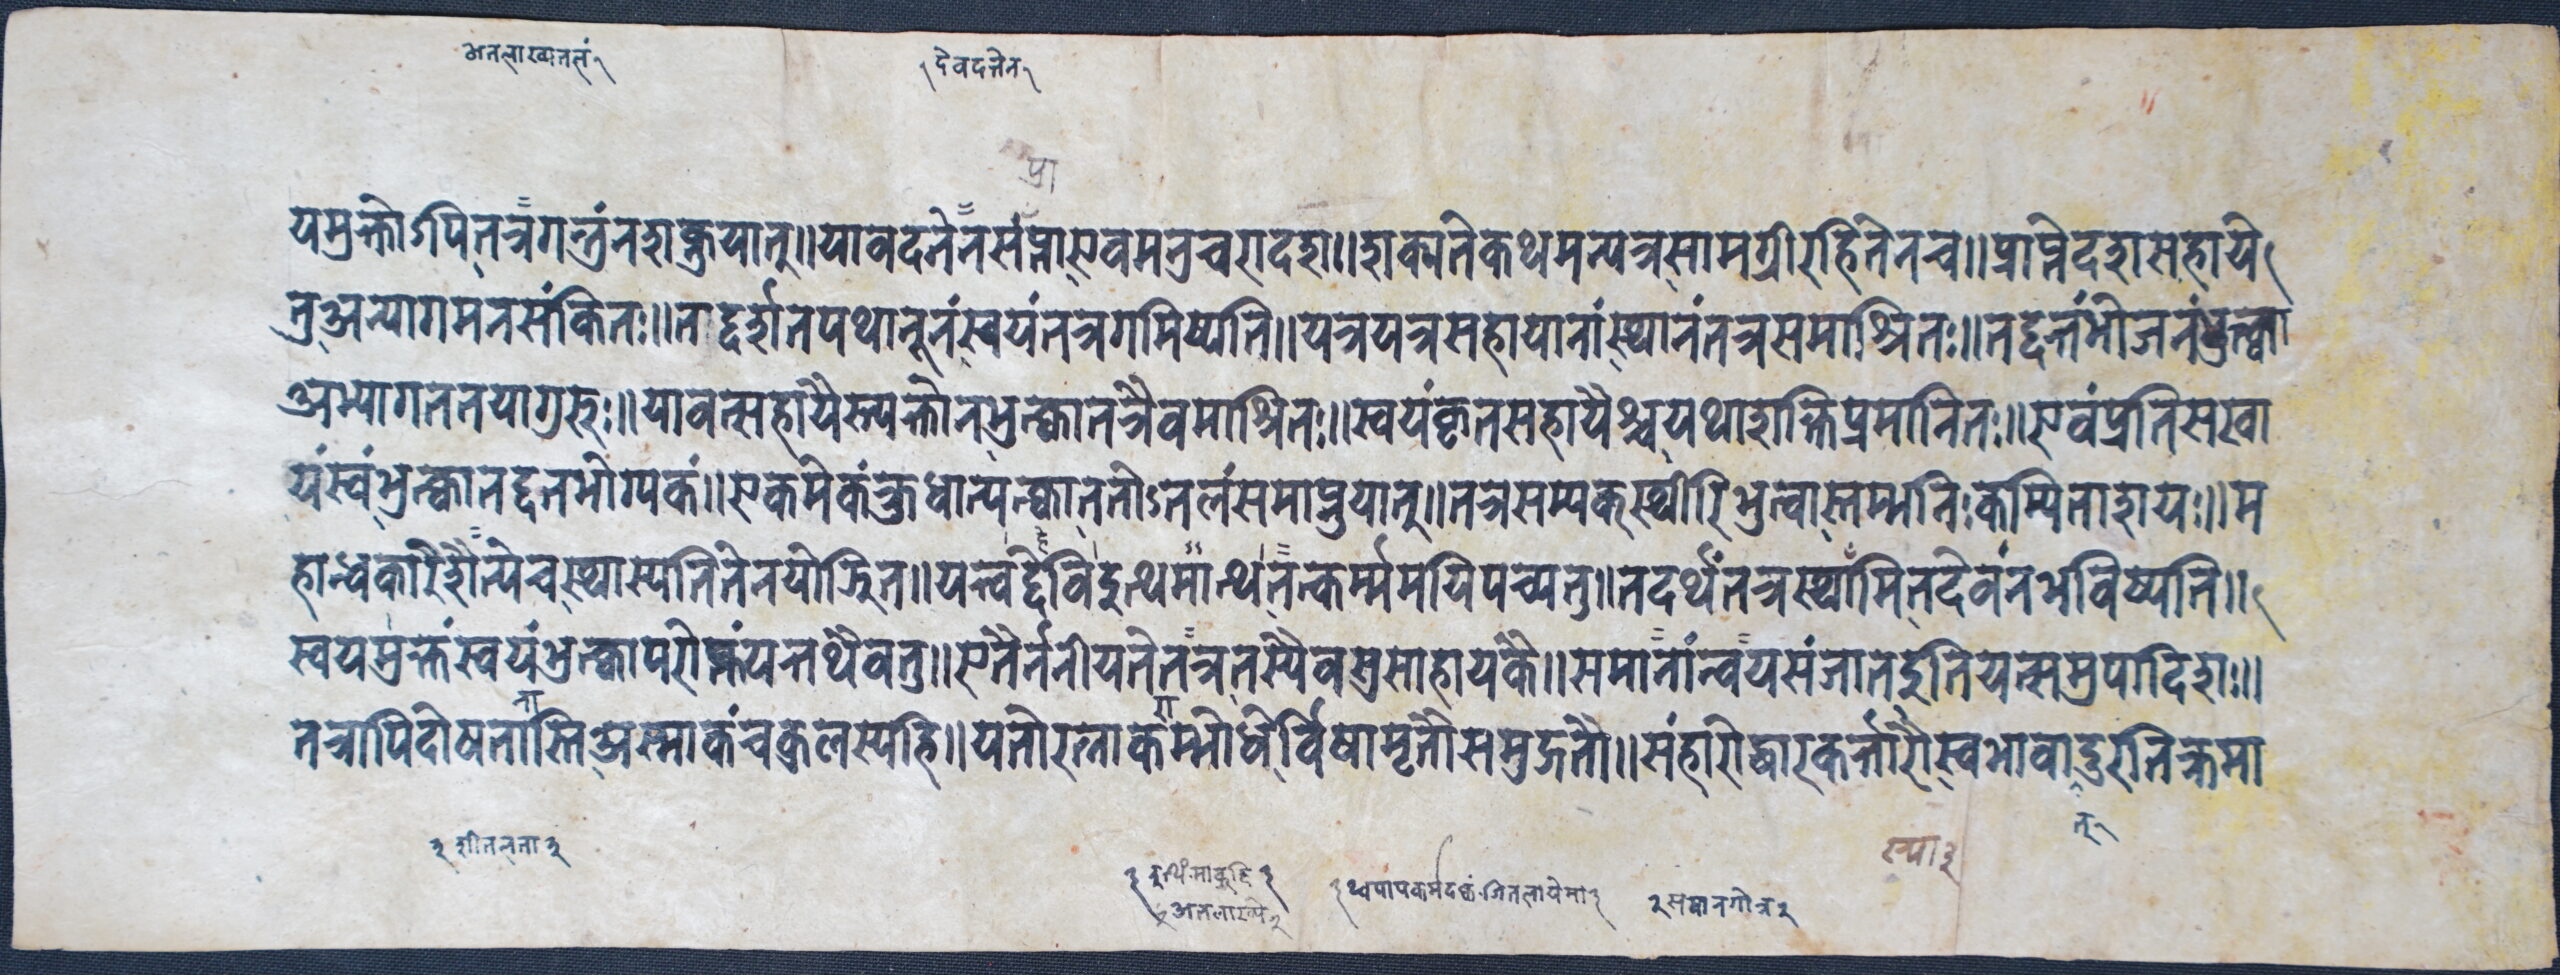 अतलाख्यतलं
देवदत्तेन
प्रा
यमुक्तोऽपि तत्र गन्तुं न शक्नुयात्॥ यावदनेन संप्राप्त एवमनुचरादश॥ शक्यते कथमन्यत्र सामग्रीरहितेन च॥ प्राप्ते दश सहाये
तु अन्यागमनसंकितः॥ तद्दर्शनपथानूनं स्वयं तत्र गमिष्यति॥ यत्र यत्र सहायानां स्थानं तत्र समाश्रितः॥ तद्दत्तं भोजनं भुक्त्वा
अभ्यागततयागुरुः॥ यावत्सहायैस्त्यक्तो न भुक्त्वा तत्रैवमाश्रितः॥ स्वयं कृतसहायैश्च यथाशक्तिप्रमानितः॥ एवं प्रतिसखा
यं स्वं भुक्त्वा तद्दतभोग्यकं॥ एकमेकं क्रुधान्यक्त्वा ततोऽतलं समाप्नुयात्॥ तत्र सम्यक् स्थीरिभुत्वा स्तम्भनिःकम्पिताशयः॥ म
हान्धकारे शैत्ये च स्थास्यति तेन योज्रित॥ यत्त्वद्देविदुत्थमात्थ तत्कर्म्म मयि पच्यतु॥ तदर्थं तत्र स्थामि तदेवं न भविष्यति॥
स्वयमुक्तं स्वयं भुक्त्वा परोक्तं यत्तथैव तु॥ एतैर्न्न नीयते तत्र तस्यैव सुसाहायकै॥ समानान्वयसंजातेद्दुति यत्समुपादिशः॥
तत्रापि दोषतास्ति अस्माकं च कुलस्य हि॥ यतो रत्नाकम्भोधेर्विषामृतौ समुद्गतौ॥ संहारोद्धारकर्त्तारौ स्वभावादुरतिक्रमा
शीतलता
अतलाख्ये
समानगोत्र